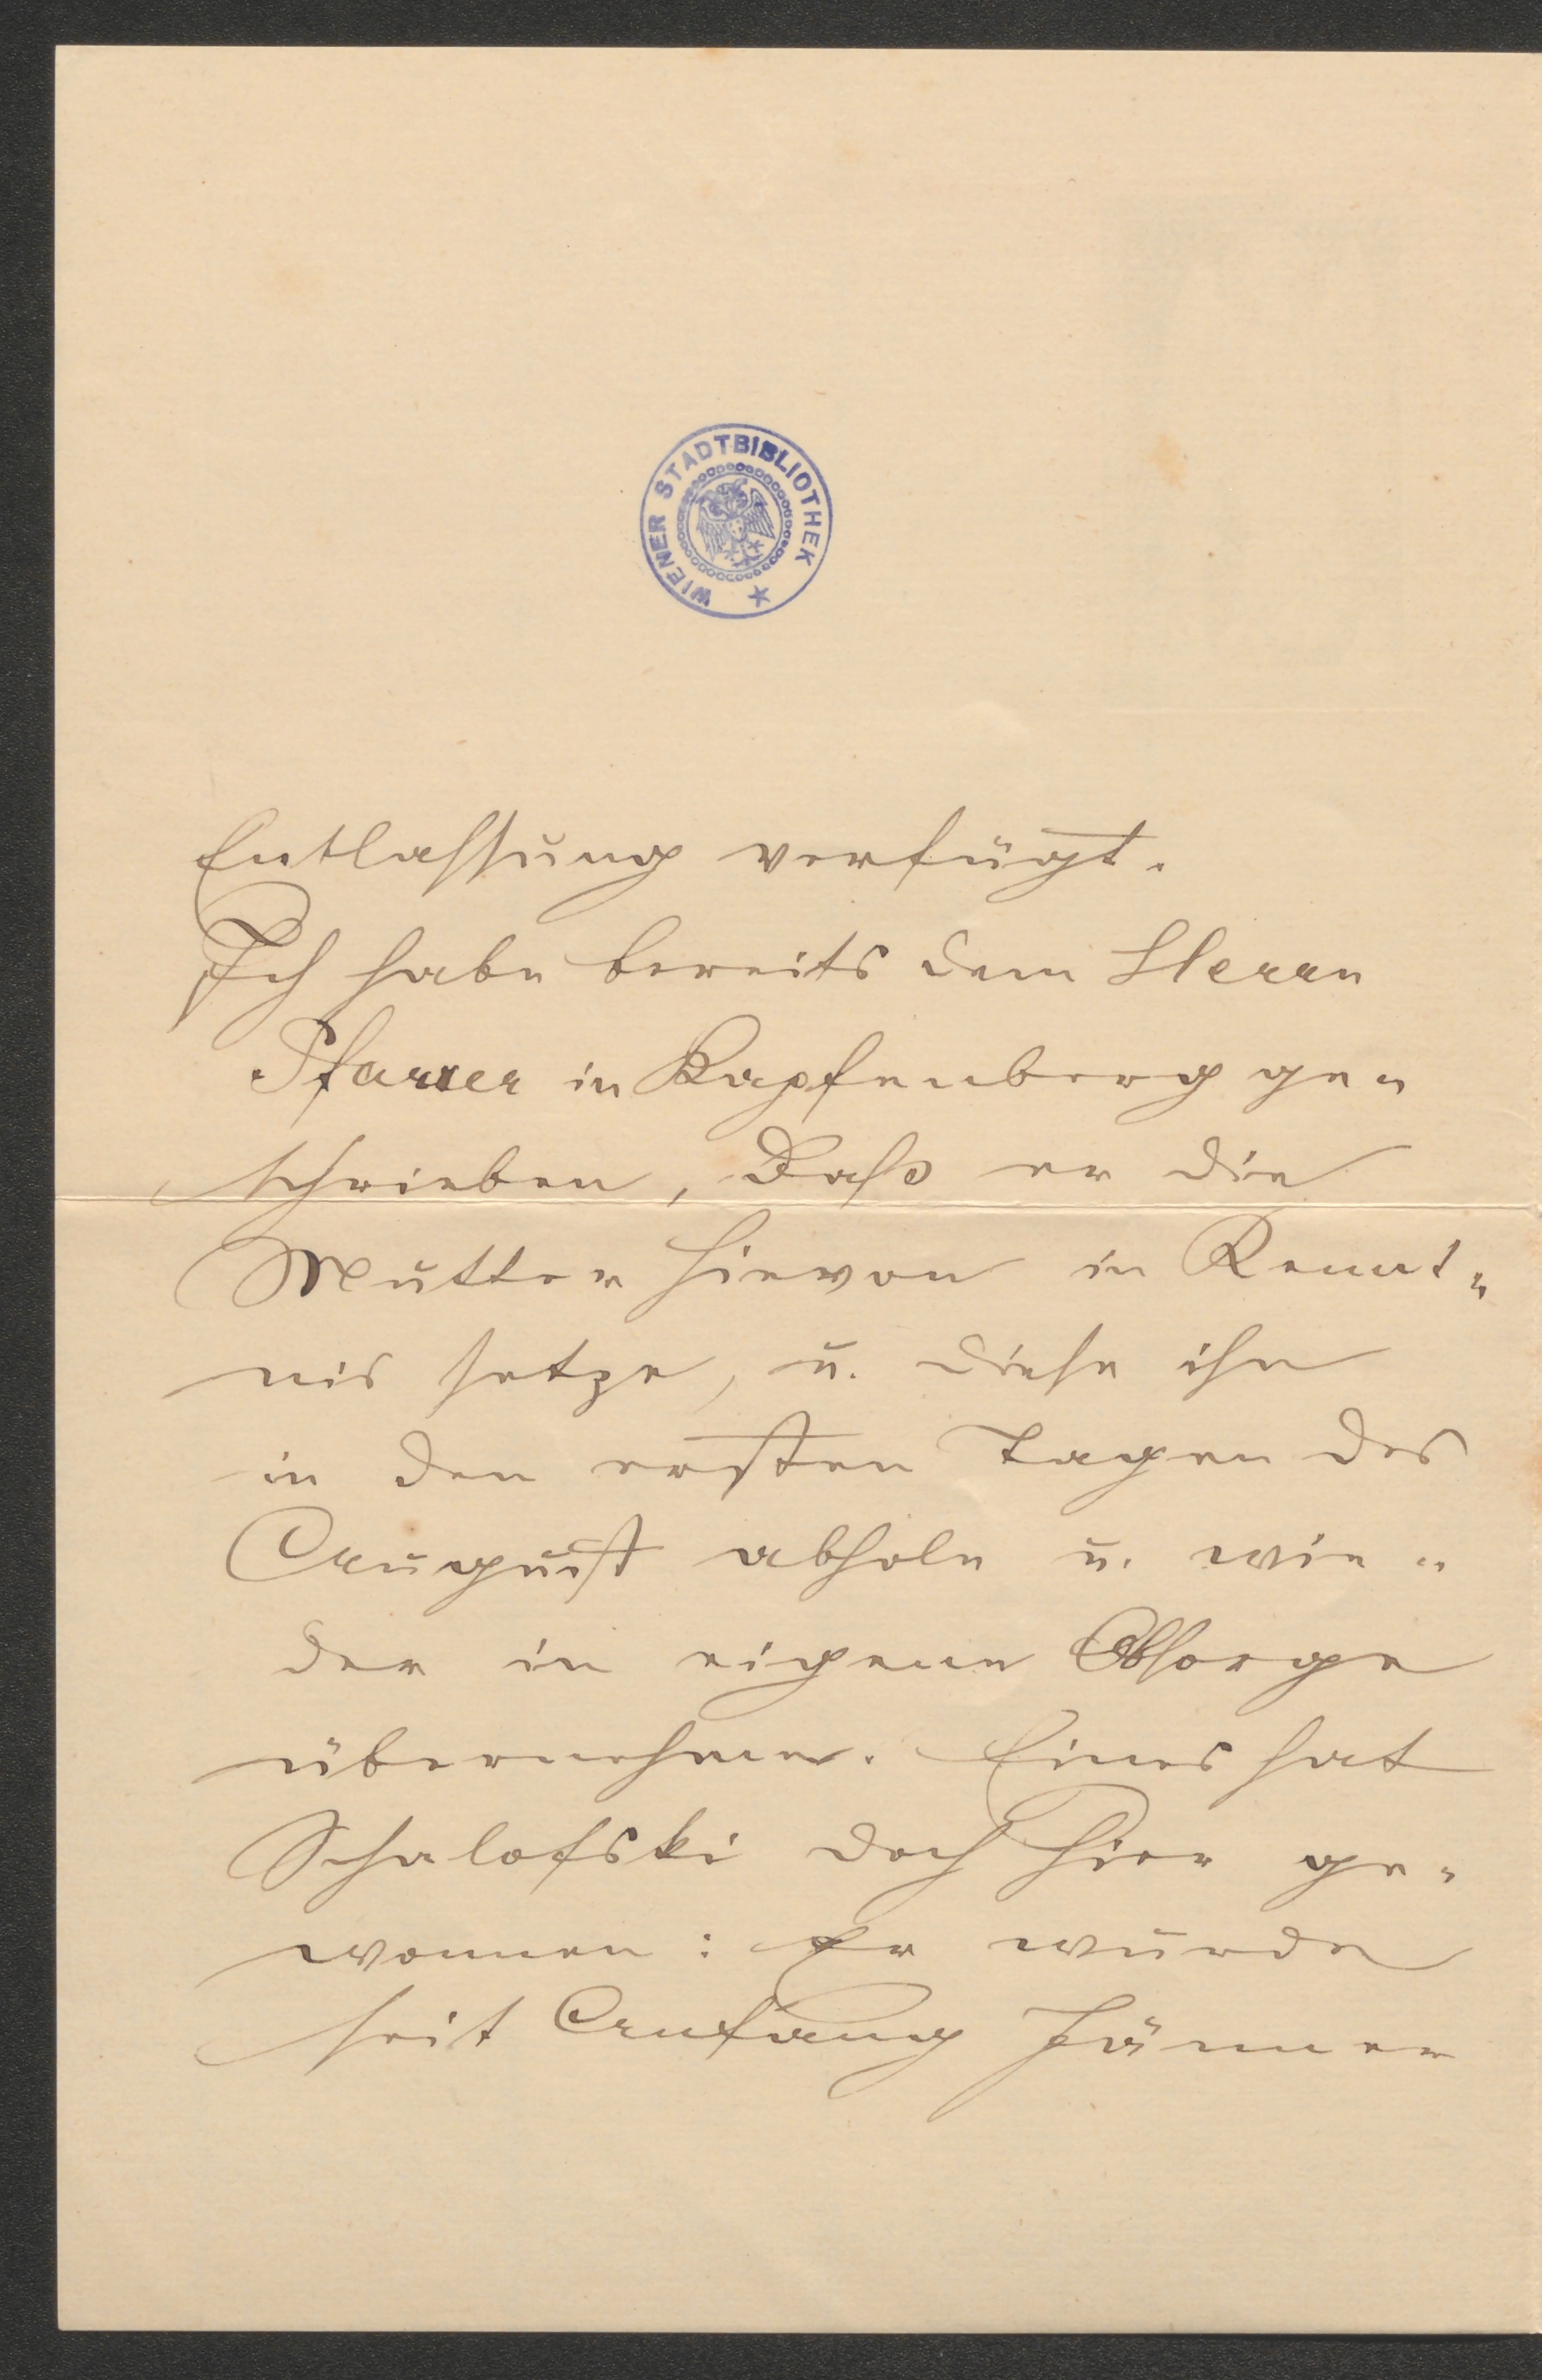 WIENER STADTBIBLIOTHEK
Entlassung verfügt.
Ich habe bereits dem Herrn
Pfarrer in Kapfenberg ge=
schrieben, daß er die
Mutter hievon in Kennt=
nis setze, u. diese ihn
in den ersten Tagen des
August abhole u. wie=
der in eigene Obsorge
übernehme. Eines hat
Schalofski doch hier ge=
wonnen: Er wurde
seit Anfang Jänner